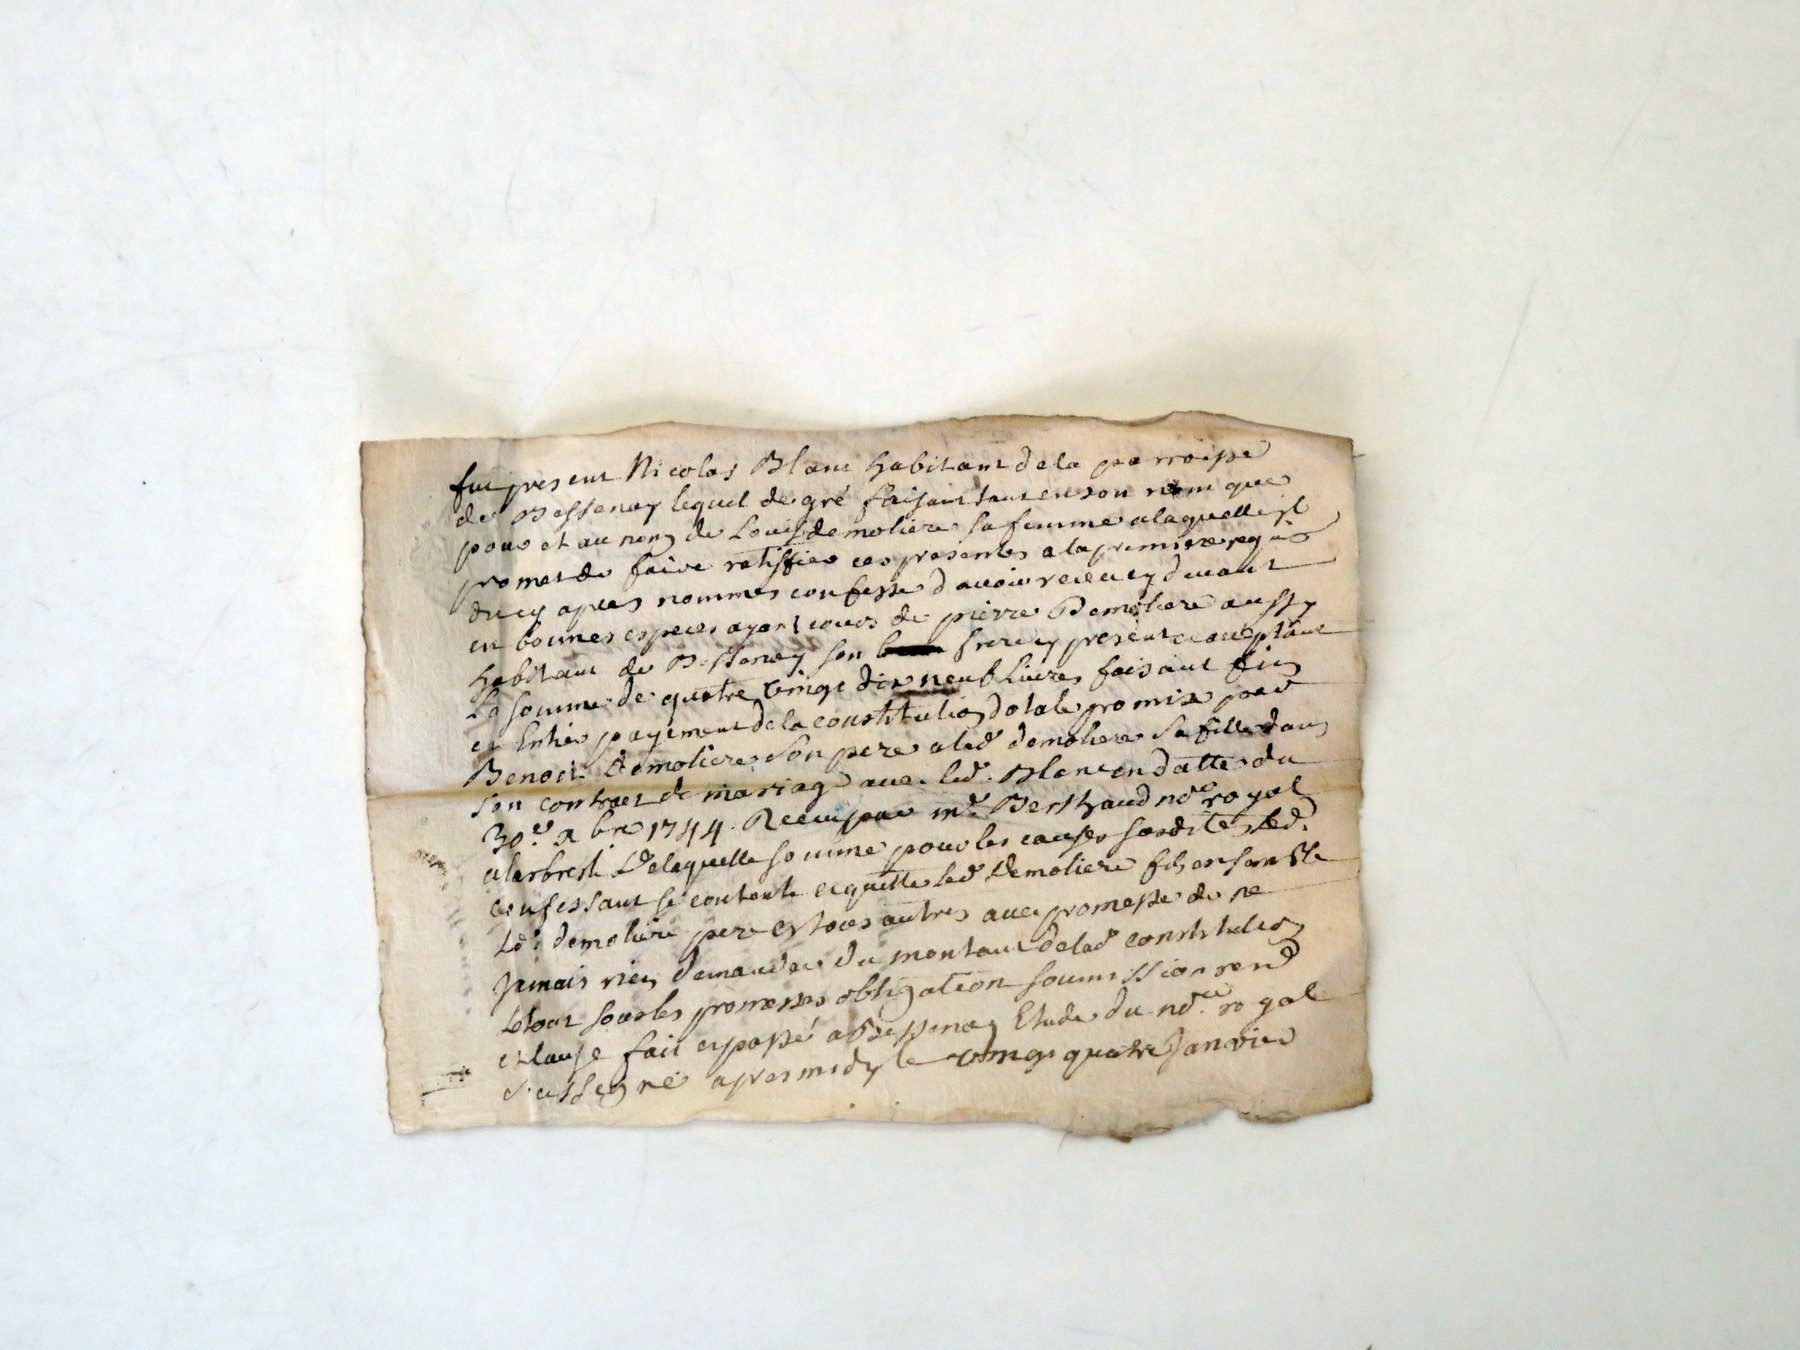 fut present Nicolas Blanc habitant de la parroisse
de Bessenay lequel de gré faisant tant en son nom que
pour et au nom de Louise demoliere sa femme a laquelle il
promet de faire ratiffier ces presentes a la premiere reqon
du cy apres nommes confesse d'avoir receu cy devant
en bonnes especes ayant cours de pierre Demoliere aussy
habitant de Bessenay son frere cy present et acceptant
La somme de quatre vingt dix neuf Livres faisant fin
et Entier payement de la constitution dotale promise pour
Benoit Demoliere son pere a lad. demoliere sa fille dans
son contract de mariage avec led. Blanc en datte du
30.e xbre 1744. Receu par me. Berthaud nore royal
a larbresle De laquelle somme pour les causes susdites led.
confessant se contente et quitte led. Demoliere fils ensemble
Led. demoliere pere et tous autres avec promesse de ne
Jamais rien demander du montant de lad. constitution
Le tout sous les promesses obligation soumission rend
et clause fait et passé a Bessenay Etude du nore royal
soussigné apres midy le vingt quatre Janvier